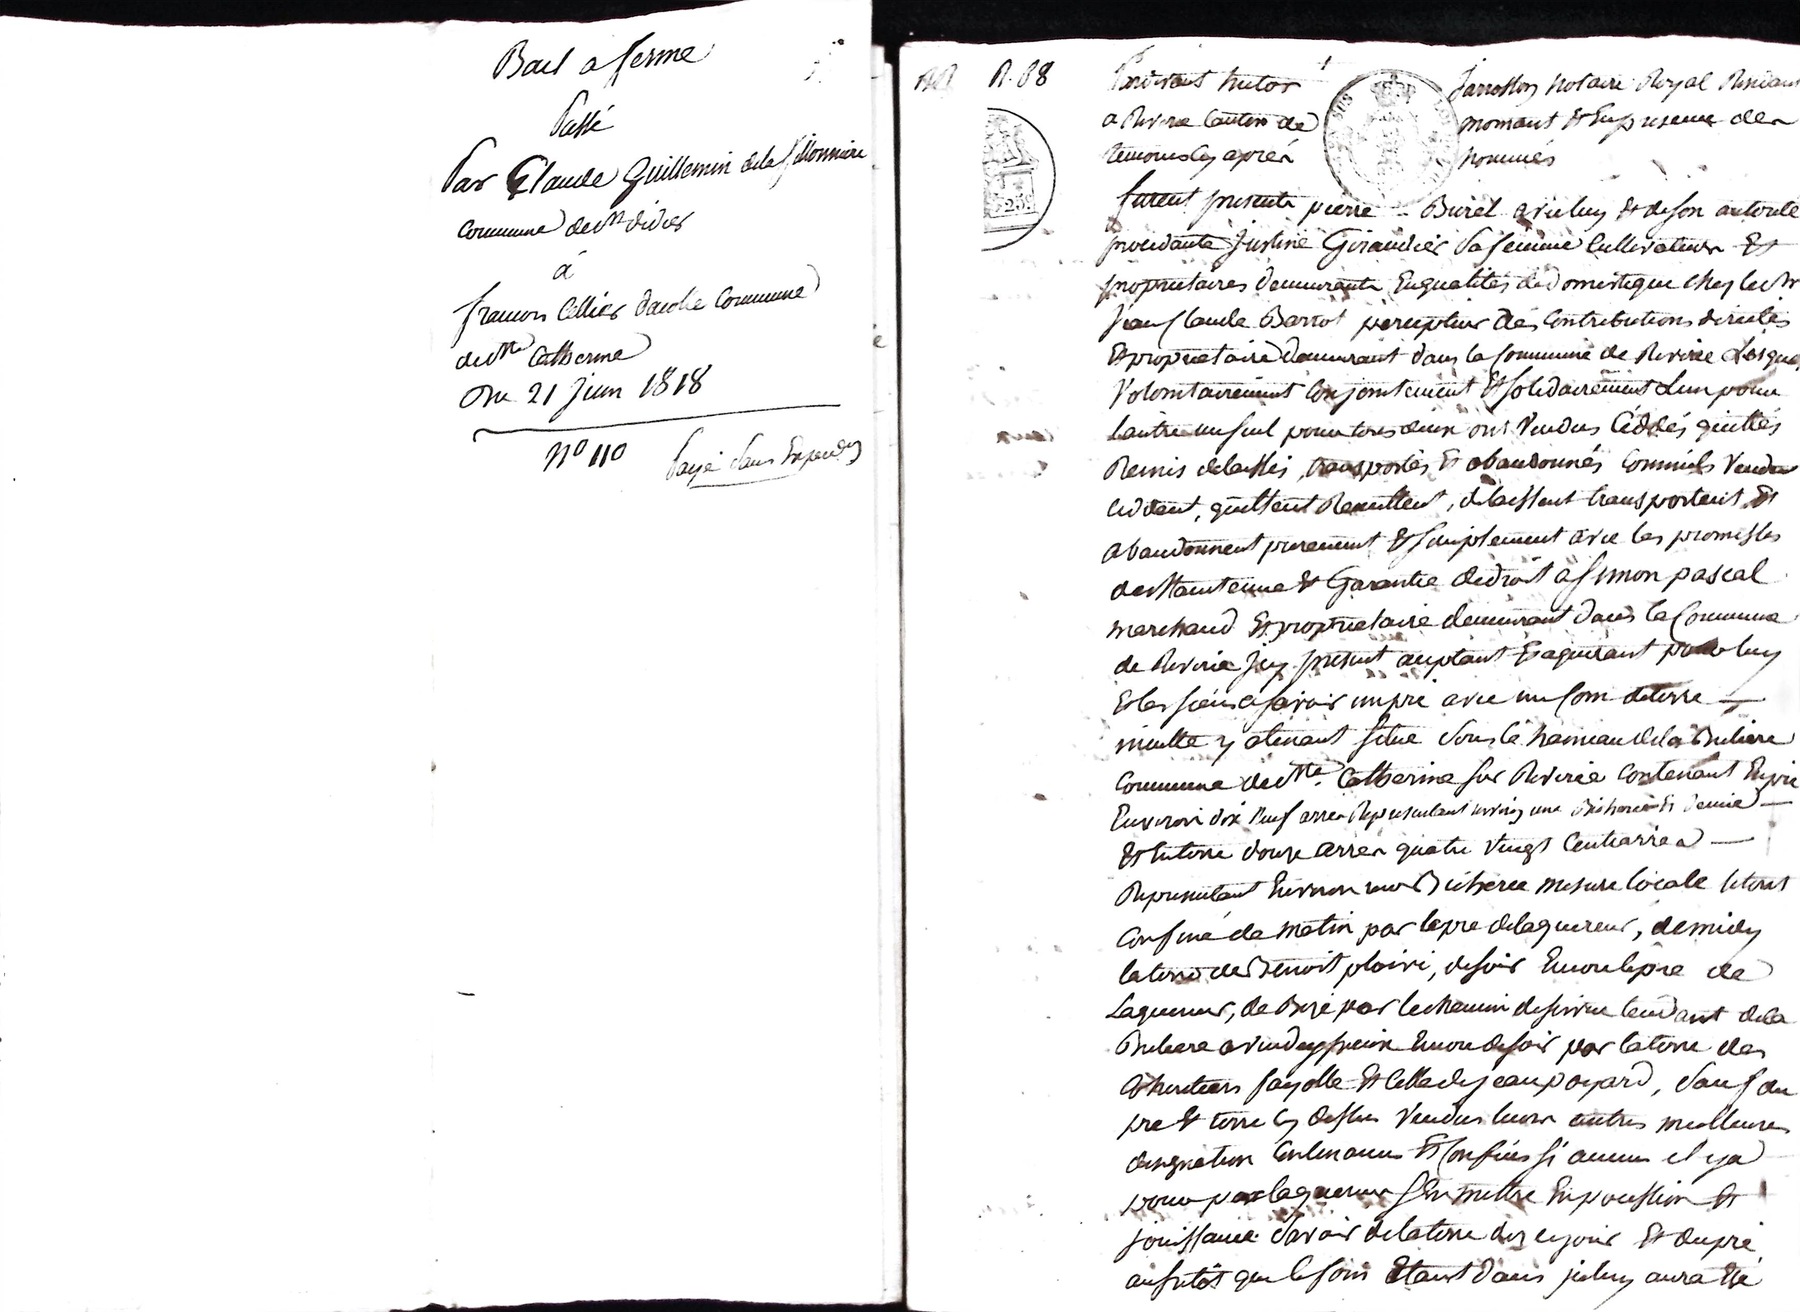 Bail a ferme
Passé
Par Claude Guillemin dela fillonniere
commune de St didier
á
francois Cellier dacole Commune
de Ste Catherine
Du 21 Juin 1818
No 110
payé sans Expedon
R. 68
Pardevant hector Janosson notaire Royal Residant
a Riverie Canton de mornant Et En presence des
temoins cy aprés nommés
furent presents pierre Burel avec luy Et deson autorité
procedante Justine Giraudier sa femme Cultivateurs Et
proprietaires demeurants En qualités de domestique chez le Sr
Jean Claude Barrot percepteur des Contributions directes
Et proprietaire demeurant dans la Commune de Riverie Lesque
Volontairement Conjointement Et solidairement L'un pour
L'autre un seul pour tous deux ont Vendus Céddés quittés
Remis delaissés, transportés Et abandonnés Comme ils Vendent
Cedent, quittent Remettent, delaissent transportent Et
abandonnent purement Et simplement avec les promesses
de Maintenue Et Garantie de droit a Simon pascal
marchand Et proprietaire demeurant dans la Commune
de Riverie Jcy present aceptant Et aquerant pour luy
Et les siens asavoir un pré avec un Coin de terre
inculte y atenant situé sous le hameau dela Bruliere
Commune de Ste Catherine sur Riverie contenant En pré
Environ dix Neuf arres Representant Environ une Bicherée Et demie
Et En terre douze arres quatre Vingt Centiarres
Representant Environ une Bicherée mesure locale le tout
Confiné de matin par le pré de laquereur, de midy
la terre de Benoit ploivi, de soir Encore le pré de
Laquereur, de Bize par le chemin de servire tendant dela
Bruliere a Encore de soir par la terre des
heritiers fayolle Et Celle de Jean poyard, sauf du
pré Et terre Cy dessus Vendus leurs autres meilleures
designation Contenances Et Confins si aucuns il y a
pour par laquereur s'En mettre En possession Et
jouissance savoir de la terre dez ce jour Et du pré
ausitôt que le foin Etant dans jceluy aura Eté